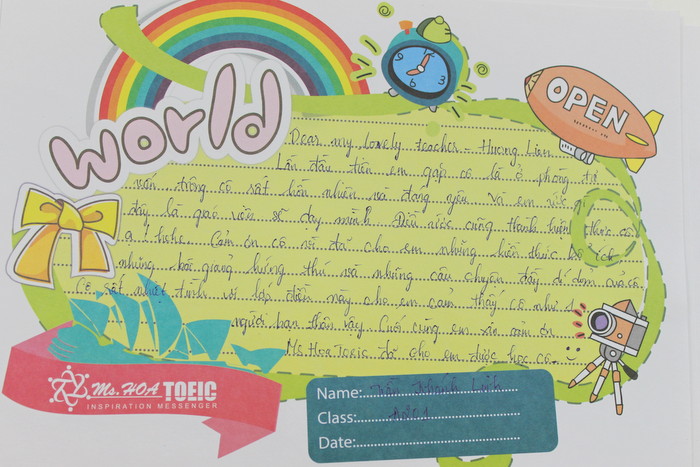 world
OPEN
Dear my lovely teacher - Huong Lian
Lần đầu tiên em gặp cô là ở phòng tư
vấn trông cô rất hiền nhiên và đáng yêu. Và em ước gì
đây là giáo viên sẽ dạy mình. Điều ước cũng thành hiện thực cô
ạ! hehe. Cảm ơn cô vì đã cho em những kiến thức bổ ích
những bài giảng hứng thú và những câu chuyện đầy dí dỏm của cô.
Cô rất nhiệt tình với lớp điều này cho em cảm thấy cô như 1
người bạn thân vậy. Cuối cùng em xin cảm ơn
Ms Hoa Toeic đã cho em được học cô.
Ms. HOA TOEIC
INSPIRATION MESSENGER
Name: Khánh Linh
Class:
Date: